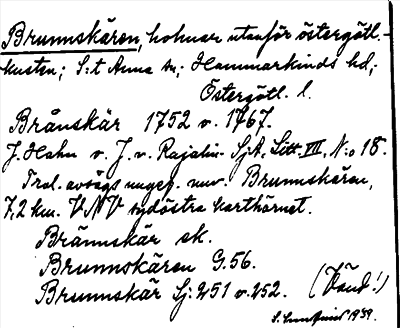 Brunnskären, holmar utanför östergötl.-
kusten; S:t Anna sn; Hammarkinds hd;
Östergötl. l.
Brånskär 1752 o. 1767.
J. Hahn o. J. v. Rajalin. SjA, Litt. VII, N:o 18.
Trol. avsågs ungef. nuv. Brunnskären,
7,2 km. VNV sydöstra karthörnet.
Brännskär ek.
Brunnskären G.56.
Brunnskär Sj: 251 o. 252. (Vänd!)
1939.